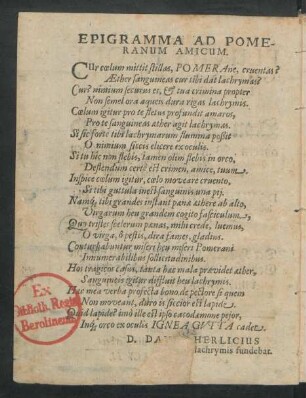 EPIGRAMMA AD POME-
RANUM AMICUM.
CUr cœlum mittit stillas, POMERAne, cruentas?
Æther sanguineas cur tibi dat lachrymas?
Cur? nimium securus es, & tua crimina propter
Non semel ora aqueis dura rigas lachrymis.
Cœlum igitur pro te fletus profundit amaros,
Pro te sanguineas æther agit lachrymas.
Si sic forte tibi lachrymarum flumina possit
O nimium siccis elicere ex oculis.
Si tu hîc non flebis, tamen olim flebis in orco,
Deflendum certè est crimen, amice, tuum.
Inspice cœlum igitur, cœlo moveare cruento,
Si tibi guttula inest sanguinis una pij.
Namq; tibi grandes instant pœnæ æthere ab alto,
Virgarum heu grandem cogito fasciculum,
Quo tristes scelerum pœnas, mihi crede, luemus,
O virga, ô pestis, dira fames, gladius.
Conturbabuntur miseri heu miseri Pomerani
Innumerabilibus sollicitudinibus.
Hos tragicos casus, tanta hæc mala prævidet æther,
Sanguineis igitur diffluit heu lachrymis.
Hæc mea verba profecta bono de pectore si quem
Non moveant, duro is siccior est lapide.
Quid lapide? imò ille est ipso cacodæmone pejor,
Inq; orco ex oculis IGNEA GUTTA cadet.
D. DA HERLICIUS
lachrymis fundebat.
Ex
Biblioth. Regia
Berolinensi.